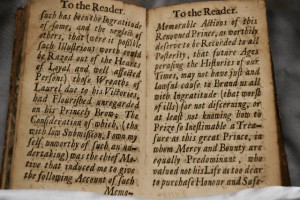 To the Reader.
such has been the Ingratitude
of some, and the neglect of
others, that (were it possible)
such Illustrious worth could
be Razed out of the Hearts
of Loyal and well affected
Persons) those Wreaths of
Laurel due to his Victories,
had Flourished unregarded
on his Princely Brow; The
Consideration of which, (tho
with low Submission, I own my
self unworthy of such an un-
dertaking) was the chief Mo-
tive that induced me to give
the following Account of such
Memo-
To the Reader.
Memorable Actions of this
Renowned Prince, as worthily
deserve to be Recorded to all
Posterity, that future Ages
perusing the Histories of our
Times, may not have just and
lawful cause to Brand us all
with Ingratitude (that worst
of ills) for not discerning, or
at least not knowing how to
Prize so Inestimable a Trea-
sure as this great Prince, in
whom Mercy and Bounty are
equally Predominant, who
valued not his Life as too dear
to purchase Honour and Safe-